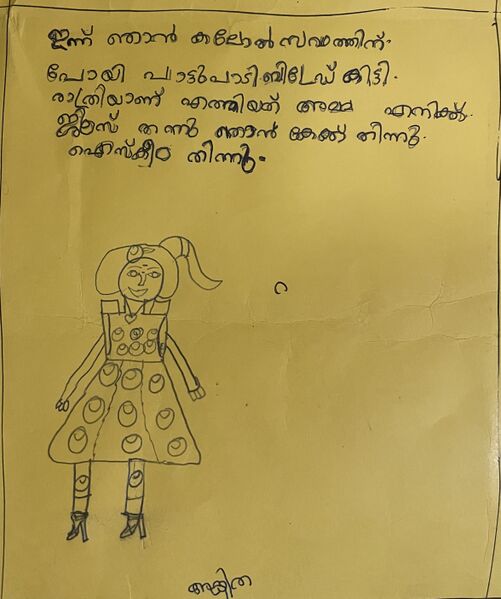 ഇന്ന് ഞാൻ കലോൽസവത്തിന്.
പോയി പാട്ടുപാടി ബിഗ്രേഡ് കിട്ടി.
രാത്രിയാണ് എത്തിയത് അമ്മ എനിക്ക്
ജ്യൂസ് തന്നു ഞാൻ കേക്ക് തിന്നു.
ഐസ്ക്രീം തിന്നു.
അങ്കിത